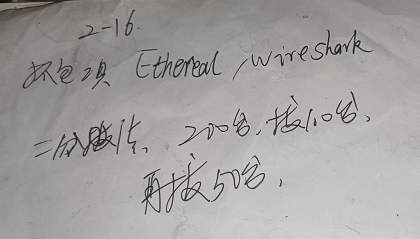 2-16.
抓包工具 Ethereal / wireshark
二分拔法、200台,拔100台,
再拔50台,